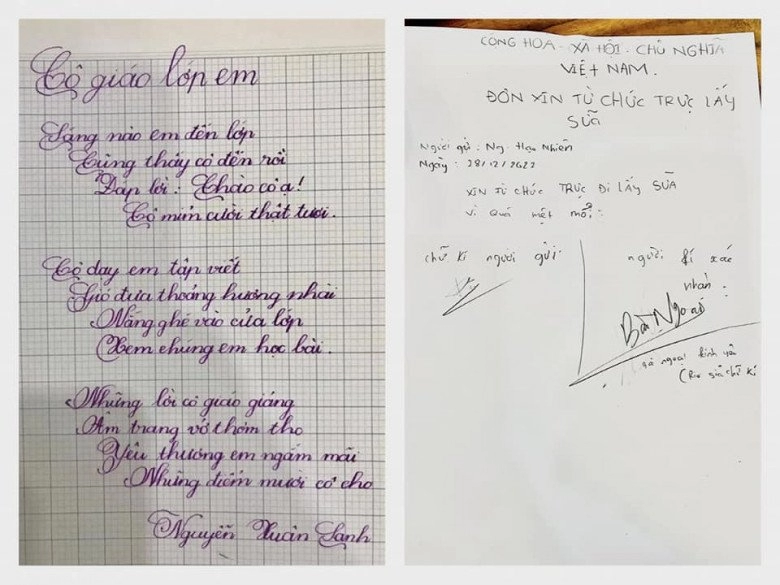 Cô giáo lớp em
Sáng nào em đến lớp
Cũng thấy cô đến rồi
Đáp lời : Chào cô ạ!
Cô mỉm cười thật tươi.
Cô dạy em tập viết
Gió đưa thoảng hương nhài
Nắng ghé vào cửa lớp
Xem chúng em học bài.
Những lời cô giáo giảng
Ấm trang vở thơm tho
Yêu thương em ngắm mãi
Những điểm mười cô cho
Nguyễn Xuân Sanh
CỘNG HOA - XÃ HỘI - CHỦ NGHĨA
VIỆT NAM.
ĐƠN XIN TỪ CHỨC TRỰC LẤY
SỮA
Người gửi : Ng. Hạo Nhiên
Ngày : 28/12/2022
XIN TỪ CHỨC TRỰC ĐI LẤY SỮA
Vì Quá mệt mỏi.
chữ kí người gửi.
người kí xác
nhận :
Bà Ngoại
bà ngoại kính yêu
chữ kí